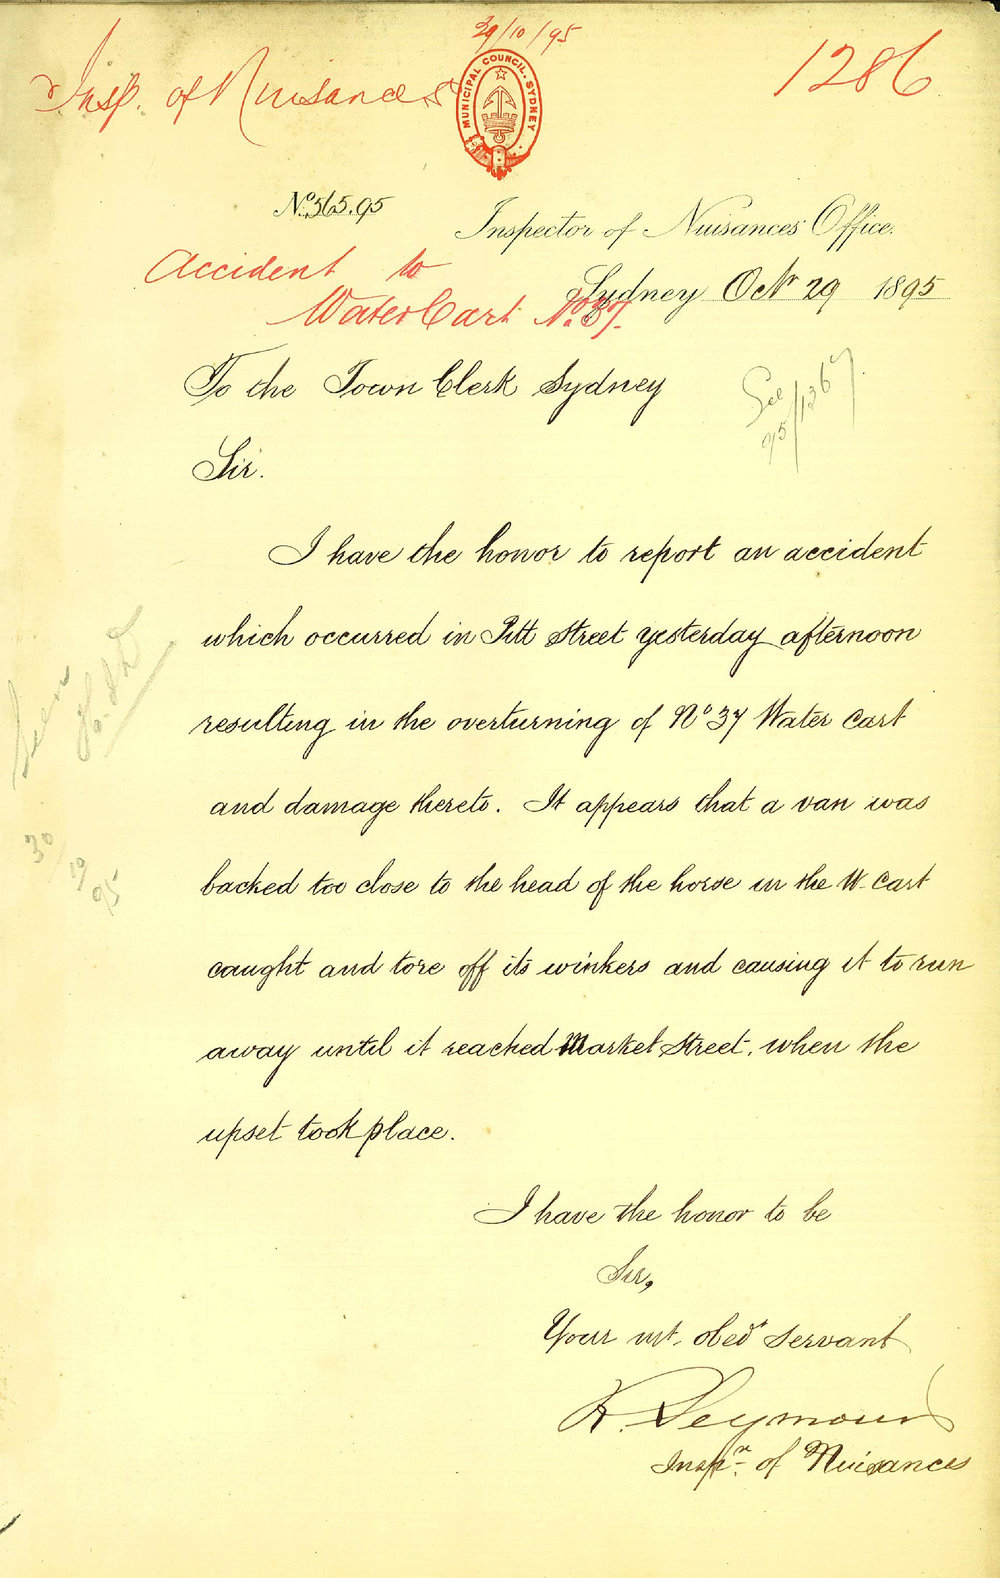 29/10/95
Insp. of Nuisances
MUNICIPAL COUNCIL. SYDNEY
1286
No. 565.95
Inspector of Nuisances Office.
Accident to
Water Cart No. 37.
Sydney Octr 29 1895
To the Town Clerk Sydney
See
95/1367
Sir.
I have the honor to report an accident
which occurred in Pitt Street yesterday afternoon
resulting in the overturning of No 37 Water Cart
and damage thereto. It appears that a van was
backed too close to the head of the horse in the W. Cart
caught and tore off its winkers and causing it to run
away until it reached Market Street, when the
upset took place.
Seen
30/10/95
I have the honor to be
Sir,
Your mt. obedt servant
R. Seymour
Inspr. of Nuisances